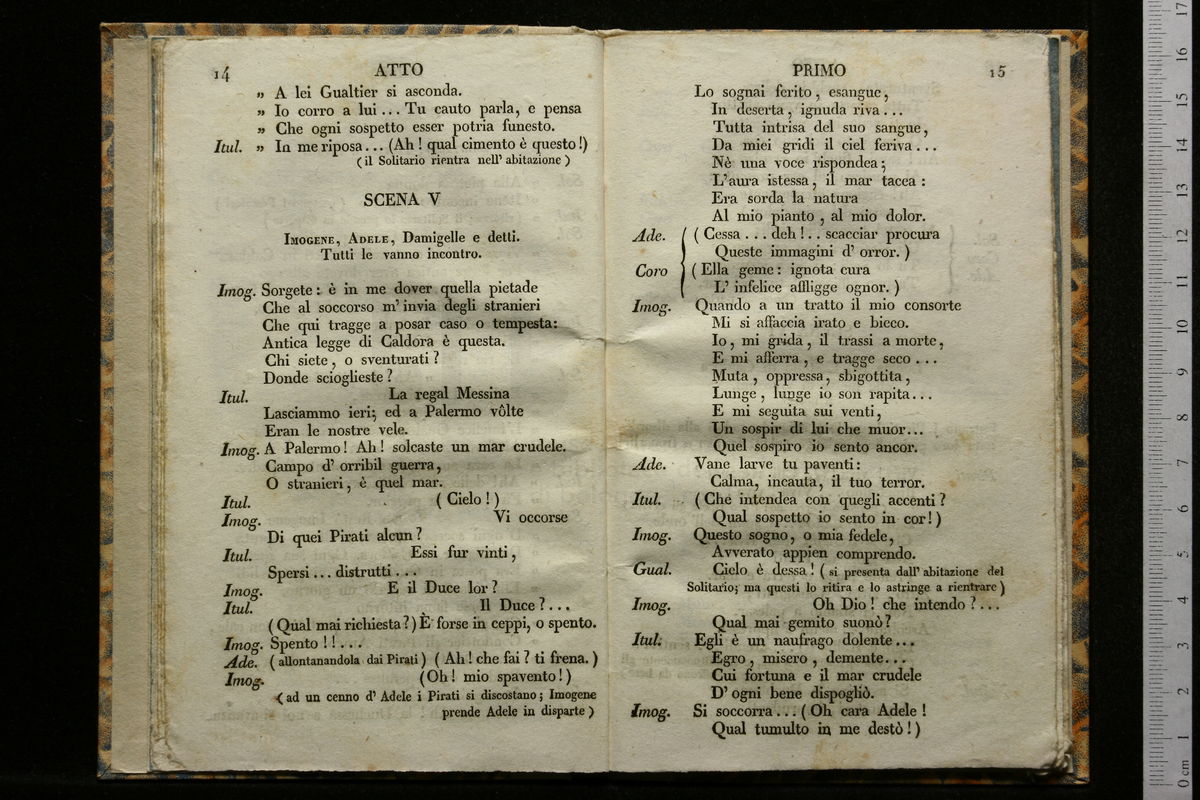 14 ATTO
„ A lei Gualtier si asconda.
„ Io corro a lui... Tu cauto parla, e pensa
„ Che ogni sospetto esser potria funesto.
Itul. „ In me riposa... (Ah! qual cimento è questo!)
(il Solitario rientra nell' abitazione)
SCENA V
IMOGENE, ADELE, Damigelle e detti.
Tutti le vanno incontro.
Imog. Sorgete: è in me dover quella pietade
Che al soccorso m' invia degli stranieri
Che qui tragge a posar caso o tempesta:
Antica legge di Caldora è questa.
Chi siete, o sventurati?
Donde scioglieste?
Itul. La regal Messina
Lasciammo ieri; ed a Palermo vôlte
Eran le nostre vele.
Imog. A Palermo! Ah! solcaste un mar crudele.
Campo d' orribil guerra,
O stranieri, è quel mar.
Itul. (Cielo!)
Imog. Vi occorse
Di quei Pirati alcun?
Itul. Essi fur vinti,
Spersi... distrutti...
Imog. E il Duce lor?
Itul. Il Duce?...
(Qual mai richiesta?) È forse in ceppi, o spento.
Imog. Spento!!...
Ade. (allontanandola dai Pirati) (Ah! che fai? ti frena.)
Imog. (Oh! mio spavento!)
(ad un cenno d' Adele i Pirati si discostano; Imogene
prende Adele in disparte)
PRIMO 15
Lo sognai ferito, esangue,
In deserta, ignuda riva...
Tutta intrisa del suo sangue,
Da miei gridi il ciel feriva...
Nè una voce rispondea;
L'aura istessa, il mar tacea:
Era sorda la natura
Al mio pianto, al mio dolor.
Ade. (Cessa... deh!.. scacciar procura
Queste immagini d' orror.)
Coro (Ella geme: ignota cura
L' infelice affligge ognor.)
Imog. Quando a un tratto il mio consorte
Mi si affaccia irato e bieco.
Io, mi grida, il trassi a morte,
E mi afferra, e tragge seco...
Muta, oppressa, sbigottita,
Lunge, lunge io son rapita...
E mi seguita sui venti,
Un sospir di lui che muor...
Quel sospiro io sento ancor.
Ade. Vane larve tu paventi:
Calma, incauta, il tuo terror.
Itul. (Che intendea con quegli accenti?
Qual sospetto io sento in cor!)
Imog. Questo sogno, o mia fedele,
Avverato appien comprendo.
Gual. Cielo è dessa! (si presenta dall' abitazione del
Solitario; ma questi lo ritira e lo astringe a rientrare)
Imog. Oh Dio! che intendo?...
Qual mai gemito suonò?
Itul. Egli è un naufrago dolente...
Egro, misero, demente...
Cui fortuna e il mar crudele
D' ogni bene dispogliò.
Imog. Si soccorra... (Oh cara Adele!
Qual tumulto in me destò!)
0 cm 1 2 3 4 5 6 7 8 9 10 11 12 13 14 15 16 17